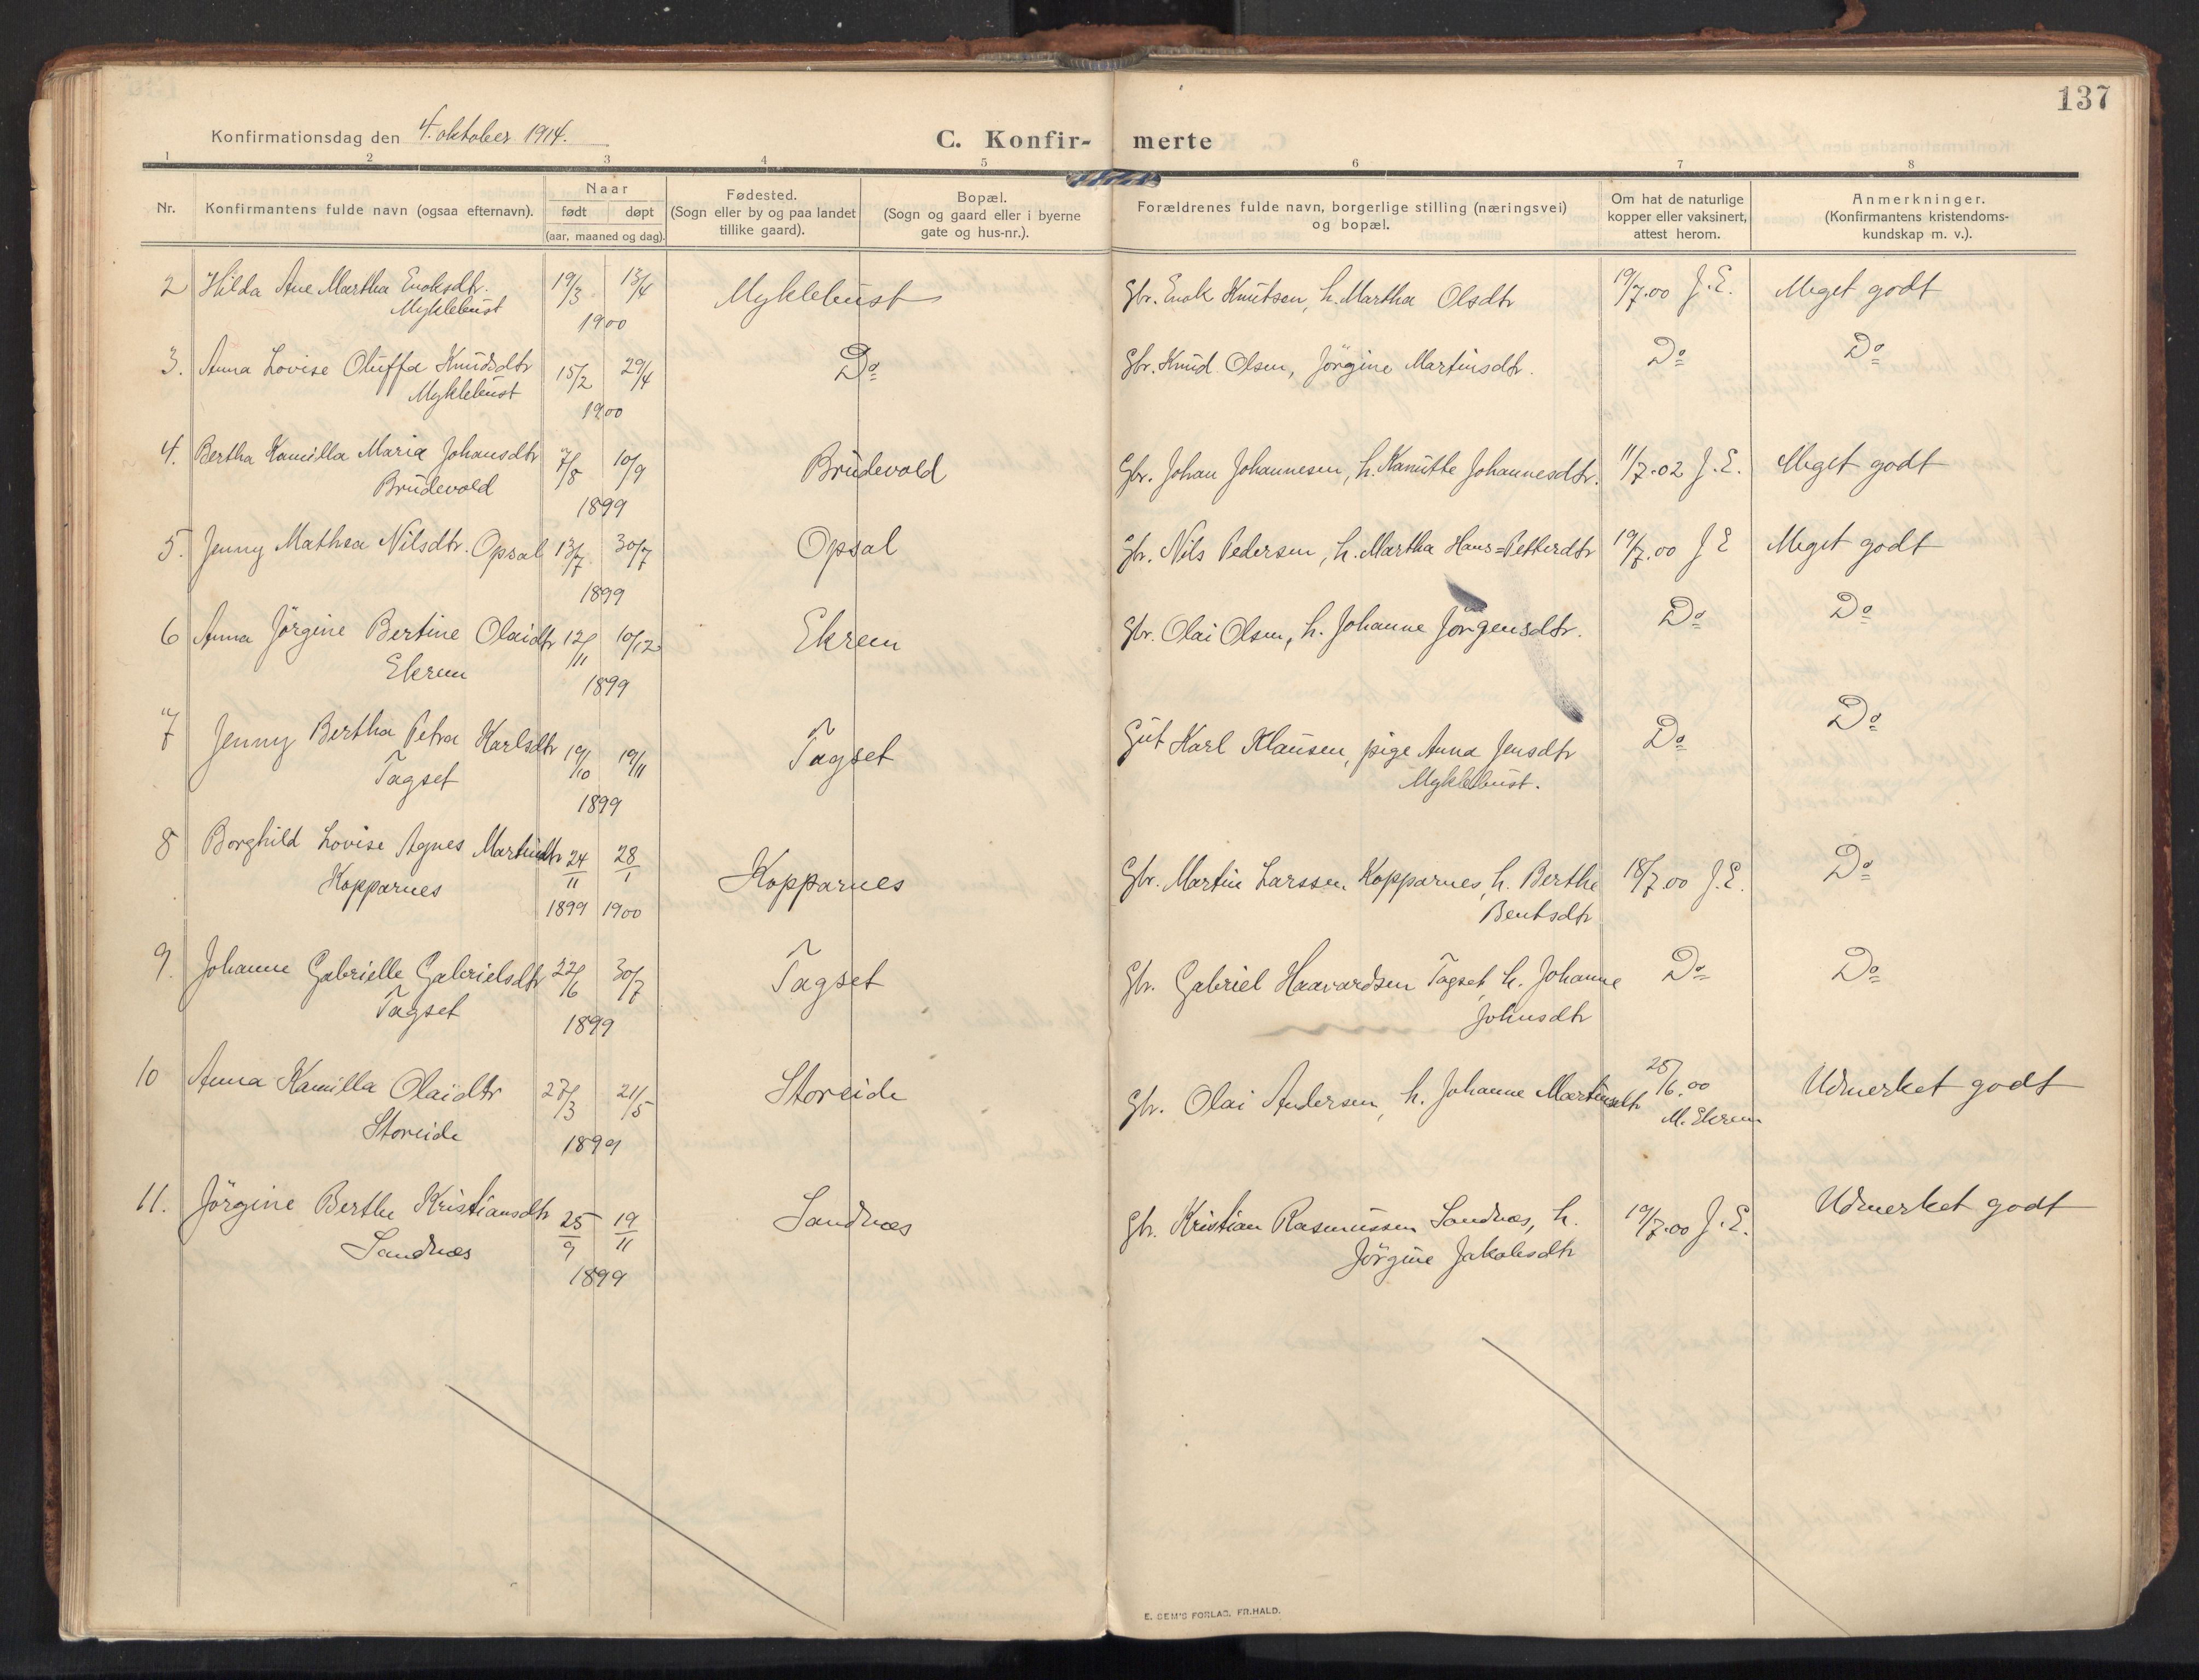 137
Konfirmationsdag den 4. oktober 1914.
C. Konfir- merte
1 2 3 4 5 6 7 8
Nr.
Konfirmantens fulde navn (ogsaa efternavn).
Naar
født døpt
(aar, maaned og dag).
Fødested.
(Sogn eller by og paa landet
tillike gaard).
Bopæl.
(Sogn og gaard eller i byerne
gate og hus-nr.).
Forældrenes fulde navn, borgerlige stilling (næringsvei)
og bopæl.
Om hat de naturlige
kopper eller vaksinert,
attest herom.
Anmerkninger.
(Konfirmantens kristendoms-
kundskap m. v.).
2 Hilda Ane Martha Enoksdtr. 19/3 13/4 Myklebust Gbr. Enok Knutsen, h. Martha Olsdtr 19/7.00 J.E. Meget godt
Myklebust
1900
3. Anna Lovise Oluffa Knudsdtr 15/2 29/4 Do Gbr. Knud Olsen, Jörgine Martinsdtr. Do Do
Myklebust
1900
4. Bertha Kamilla Maria Johansdtr 7/8 10/9 Brudevold Gbr. Johan Johannesen, h. Kanutte Johannesdtr. 11/7.02 J.E. Meget godt
Brudevold
1899
5. Jenny Mathea Nilsdtr. Opsal 13/7 30/7 Opsal Gbr. Nils Pedersen, h. Martha Hans=Petterdtr 19/7.00 J E Meget godt
1899
6 Anna Jörgine Bertine Olaidtr 12/11 10/12 Ekrem Gbr. Olai Olsen, h. Johanne Jörgensdtr. Do Do
Ekrem
1899
7 Jenny Bertha Petra Karlsdtr 19/10 19/11 Tagset Gut Karl Klausen, pige Anna Jensdtr Do Do
Tagset Myklebust.
1899
8 Borghild Lovise Agnes Martindtr 24/11 28/1 Kopparnes Gbr. Martin Larssen Kopparnes, h. Berthe 18/7.00 J.E. Do
Kopparnes Bentsdtr
1899 1900
9. Johanne Gabrielle Gabrielsdtr 22/6 30/7 Tagset Gbr. Gabriel Haavardsen Tagset, h. Johanne Do Do
Tagset Johnsdtr
1899
10 Anna Kamilla Olaidtr 27/3 21/5 Storeide Gbr. Olai Andersen, h. Johanne Martinsdtr 25/6.00 Udmerket godt
Storeide M. Ekrem
1899
11. Jörgine Berthe Kristiansdtr 25/9 19/11 Sandnæs Gbr. Kristian Rasmussen Sandnæs, h. 19/7.00 J.E. Udmerket godt
Sandnæs Jörgine Jakobsdtr
1899
E. SEM'S FORLAG, FR.HALD.